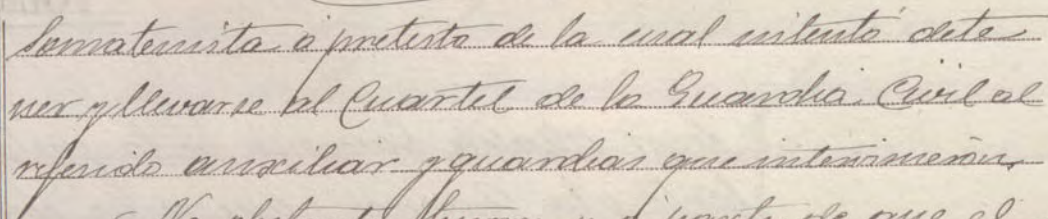 Somatenista á pretesto de la cual intentó dete
ner y llevarse al Cuartel de la Guardia Civil al
referido auxiliar y guardias que intervinieron,
No obstante de que el